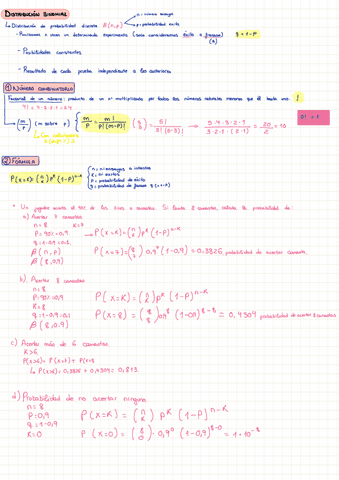 DISTRIBUCIÓN BINOMIAL
↳ Distribución de probabilidad discreta B(n,p)
n = número ensayos
p = probabilidad éxito
- Realizamos n veces un determinado experimento (solo consideramos éxito o fracaso)
q = 1-p
- Probabilidades constantes
- Resultado de cada prueba independiente a las anteriores
① NÚMERO COMBINATORIO
Factorial de un número: producto de un nº multiplicado por todos los números naturales menores que él hasta uno. !
4! = 4·3·2·1 = 24
(m p) (m sobre p) { (m p) = m! / p!(m-p)!
(5 3) = 5! / 3!(5-3) → 5·4·3·2·1 / 3·2·1·(2·1) = 20/2 = 10
0! = 1
↳ Con calculadora
② FÓRMULA
P(x=K) = (n K) p^K (1-p)^n-K
n = nº ensayos o intentos
K = nº éxitos
p = probabilidad de éxito
q = probabilidad de fracaso q = (1-p)
a) Acertar 7 canastas
n=8 K=7
P=90%=0,9
q=1-0,9=0,1
β(n,p)
β(8,0,9)
→ P(x=K) = (n K) p^K (1-p)^n-K
P(x=7) = (8 7) 0,9^7 (1-0,9) = 0,3826 probabilidad de acertar 7 canastas
b) Acertar 8 canastas
n=8
P=90%=0,9
K=8
q=1-0,9=0,1
β(8,0,9)
P(x=K) = (n K) p^K (1-p)^n-K
P(x=8) = (8 8) 0,9^8 (1-0,9)^8-8 = 0,4309 probabilidad de acertar 8 canastas
c) Acertar más de 6 canastas
K>6
P(x>6) = P(x=7) + P(x=8
↳ P(x>6) = 0,3826 + 0,4309 = 0,813
d) Probabilidad de no acertar ninguna
n=8
P=0,9
q=1-0,9
K=0
P(x=K) = (n K) p^K (1-p)^n-K
P(x=0) = (8 0) · 0,9^0 (1-0,9)^8-0 = 1·10^-8